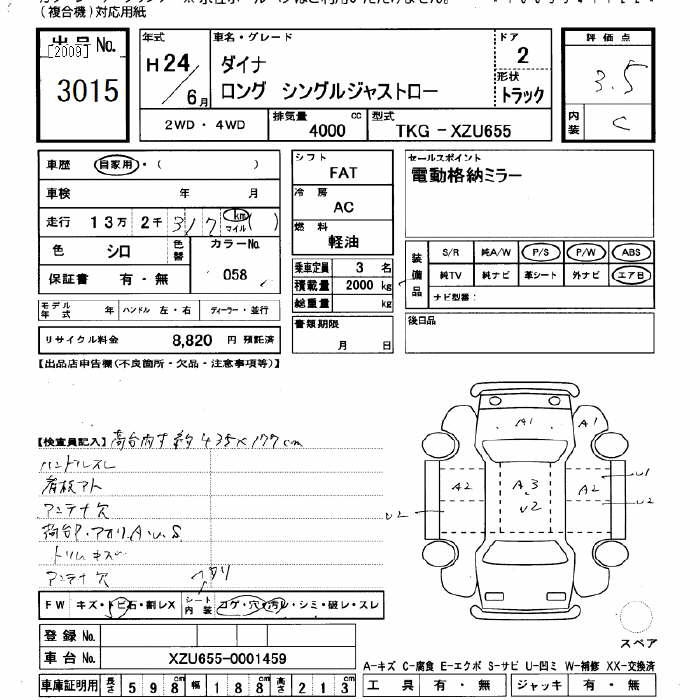 (複合機)対応用紙
出品No.
[2009]
3015
年式 車名・グレード ドア 評価点
H24/6月 ダイナ 2 3.5
ロング シングルジャストロー 形状 トラック
2WD・4WD 排気量 4000 cc 型式 TKG-XZU655 内装 C
車歴 自家用・( )
車検 年 月
走行 13万 2千 317 km マイル ( )
色 シロ 色替 カラーNo. 058
保証書 有・無
モデル年式 年 ハンドル 左・右 ディーラー・並行
リサイクル料金 8,820 円 預託済
シフト FAT
冷房 AC
燃料 軽油
乗車定員 3 名
積載量 2000 kg
総重量 kg
書類期限
月 日
セールスポイント
電動格納ミラー
装備品 S/R 純A/W P/S P/W ABS
純TV 純ナビ 革シート 外ナビ エアB
ナビ型番:
後日品
【出品店申告欄(不良箇所・欠品・注意事項等)】
【検査員記入】荷台内寸約435×177cm
ハンドルスレ
看板アト
アンテナ穴
荷台P・アオリA・U・S
トリムキズ
アンテナ穴
FW キズ・トビ石・割レX シート内装 コゲ・穴・汚レ・シミ・破レ・スレ
登録No.
車台No. XZU655-0001459
車庫証明用 長さ 598cm 幅 188cm 高さ 213cm
A1 A1
A2 A3 A2 U1
U2 U2 U2
スペア
A-キズ C-腐食 E-エクボ S-サビ U-凹ミ W-補修 XX-交換済
工具 有・無 ジャッキ 有・無